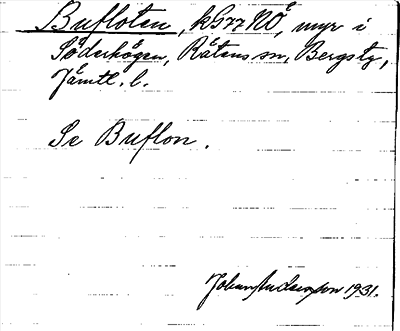 Bufloten, k577NÖ, myr i
Söderhögen, Rätans sn, Bergs tg,
Jämtl. l.
Se Buflon.
Johan Anderzon 1931.